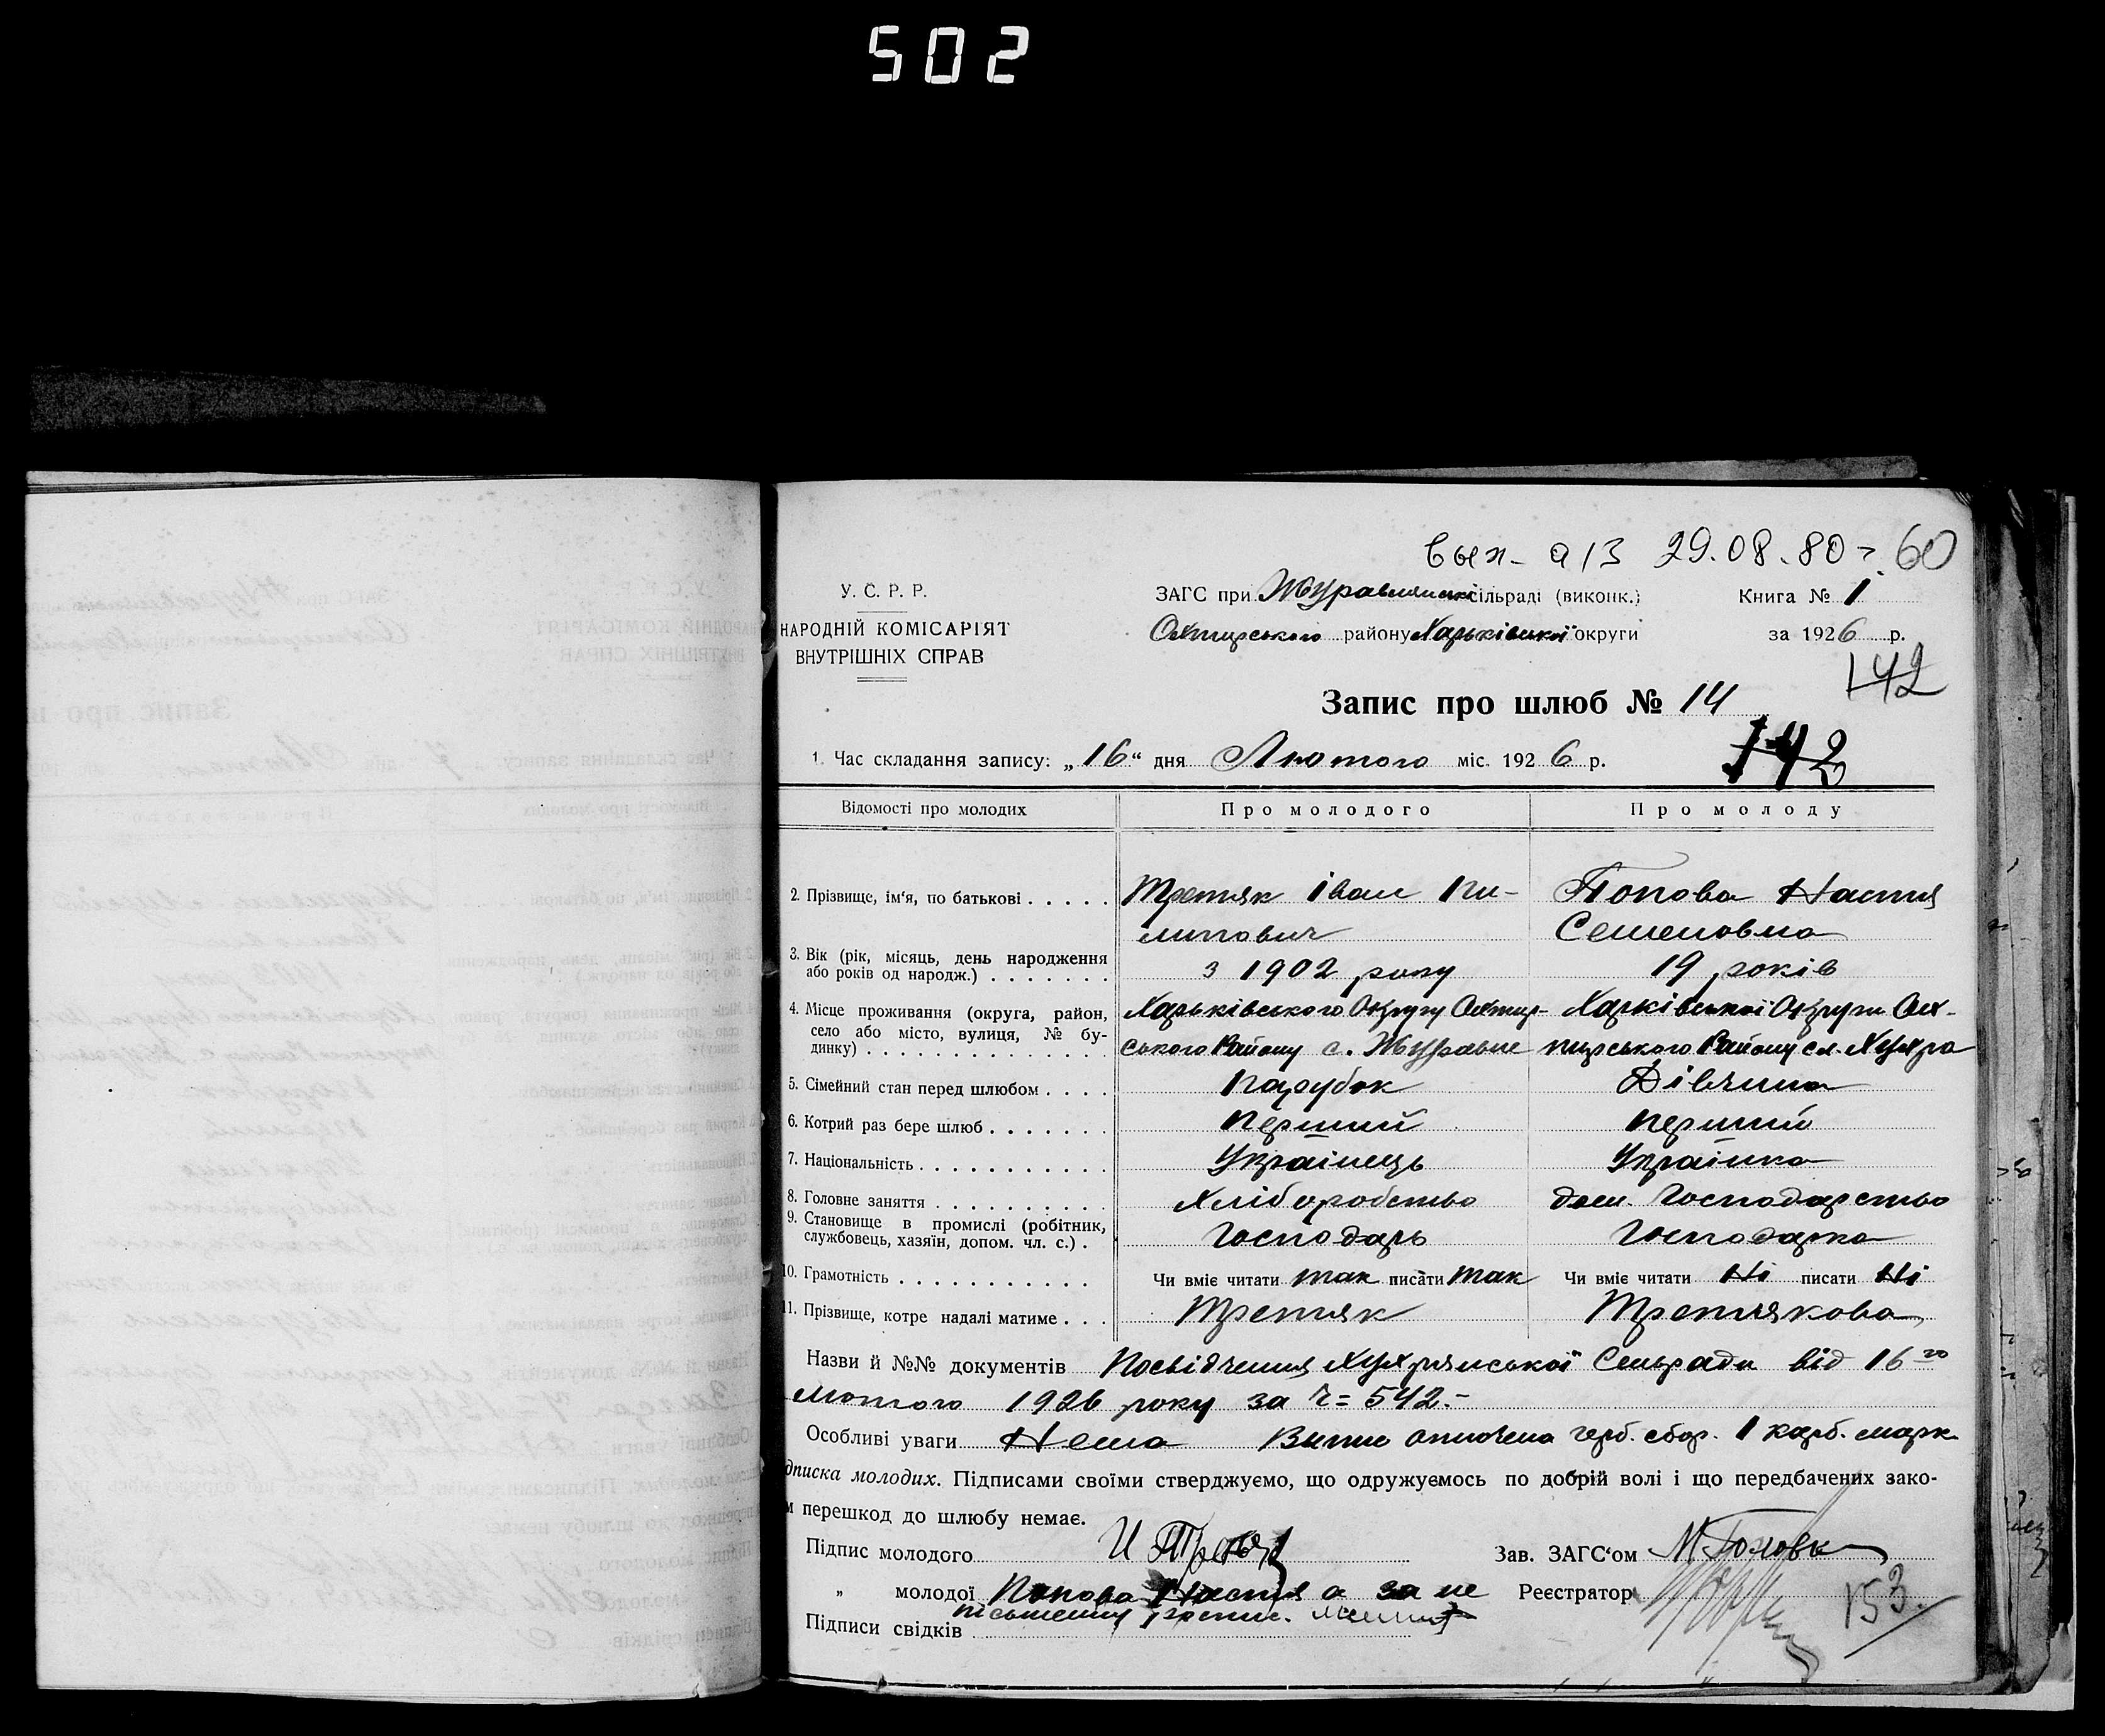 502
вып- а/з 29.08.80г. 60
У. С. Р. Р.
НАРОДНІЙ КОМІСАРІЯТ
ВНУТРІШНІХ СПРАВ
ЗАГС при Журавлянські сільраді (виконк.)
Охтирського району Харьківської округи
Книга № 1
за 1926 р.
142
Запис про шлюб № 14
142
1. Час складання запису: „16“ дня Лютого міс. 1926 р.
Відомості про молодих Про молодого Про молоду
2. Прізвище, ім'я, по батькові . . . . . Третяк Іван Пи- Попова Настя
липович Семеновна
3. Вік (рік, місяць, день народження
або років од народж.) . . . . . . . з 1902 року 19 років
4. Місце проживання (округа, район, Харьківського Округу Охтир- Харківської Округи Ох-
село або місто, вулиця, № бу-
динку) . . . . . . . . . . . . . . . ського Району с. Журавне тирського Району сл. Хухра
5. Сімейний стан перед шлюбом . . . . Парубок Дівчина
6. Котрий раз бере шлюб . . . . . . . Перший перший
7. Національність . . . . . . . . . . . Україінець Украінка
8. Головне заняття . . . . . . . . . . хліборобство дом. Господарство
9. Становище в промислі (робітник,
службовець, хазяїн, допом. чл. с.) . Господарь Господарка
10. Грамотність . . . . . . . . . . . Чи вміє читати так писати так Чи вміє читати Ні писати Ні
11. Прізвище, котре надалі матиме . . . Третяк Третякова
Назви й №№ документів Посвідчення Хухрянської Сельради від 16го
лютого 1926 року за Ч= 542.-
Особливі уваги Нема Випис оплочена герб. сбор. 1 карб. марк.
дписка молодих. Підписами своїми стверджуємо, що одружуємось по добрій волі і що передбачених зако-
м перешкод до шлюбу немає.
Підпис молодого И Зав. ЗАГС'ом
„ молодої Попова Настя а за не Реєстратор 153.
письменну роспис.
Підписи свідків